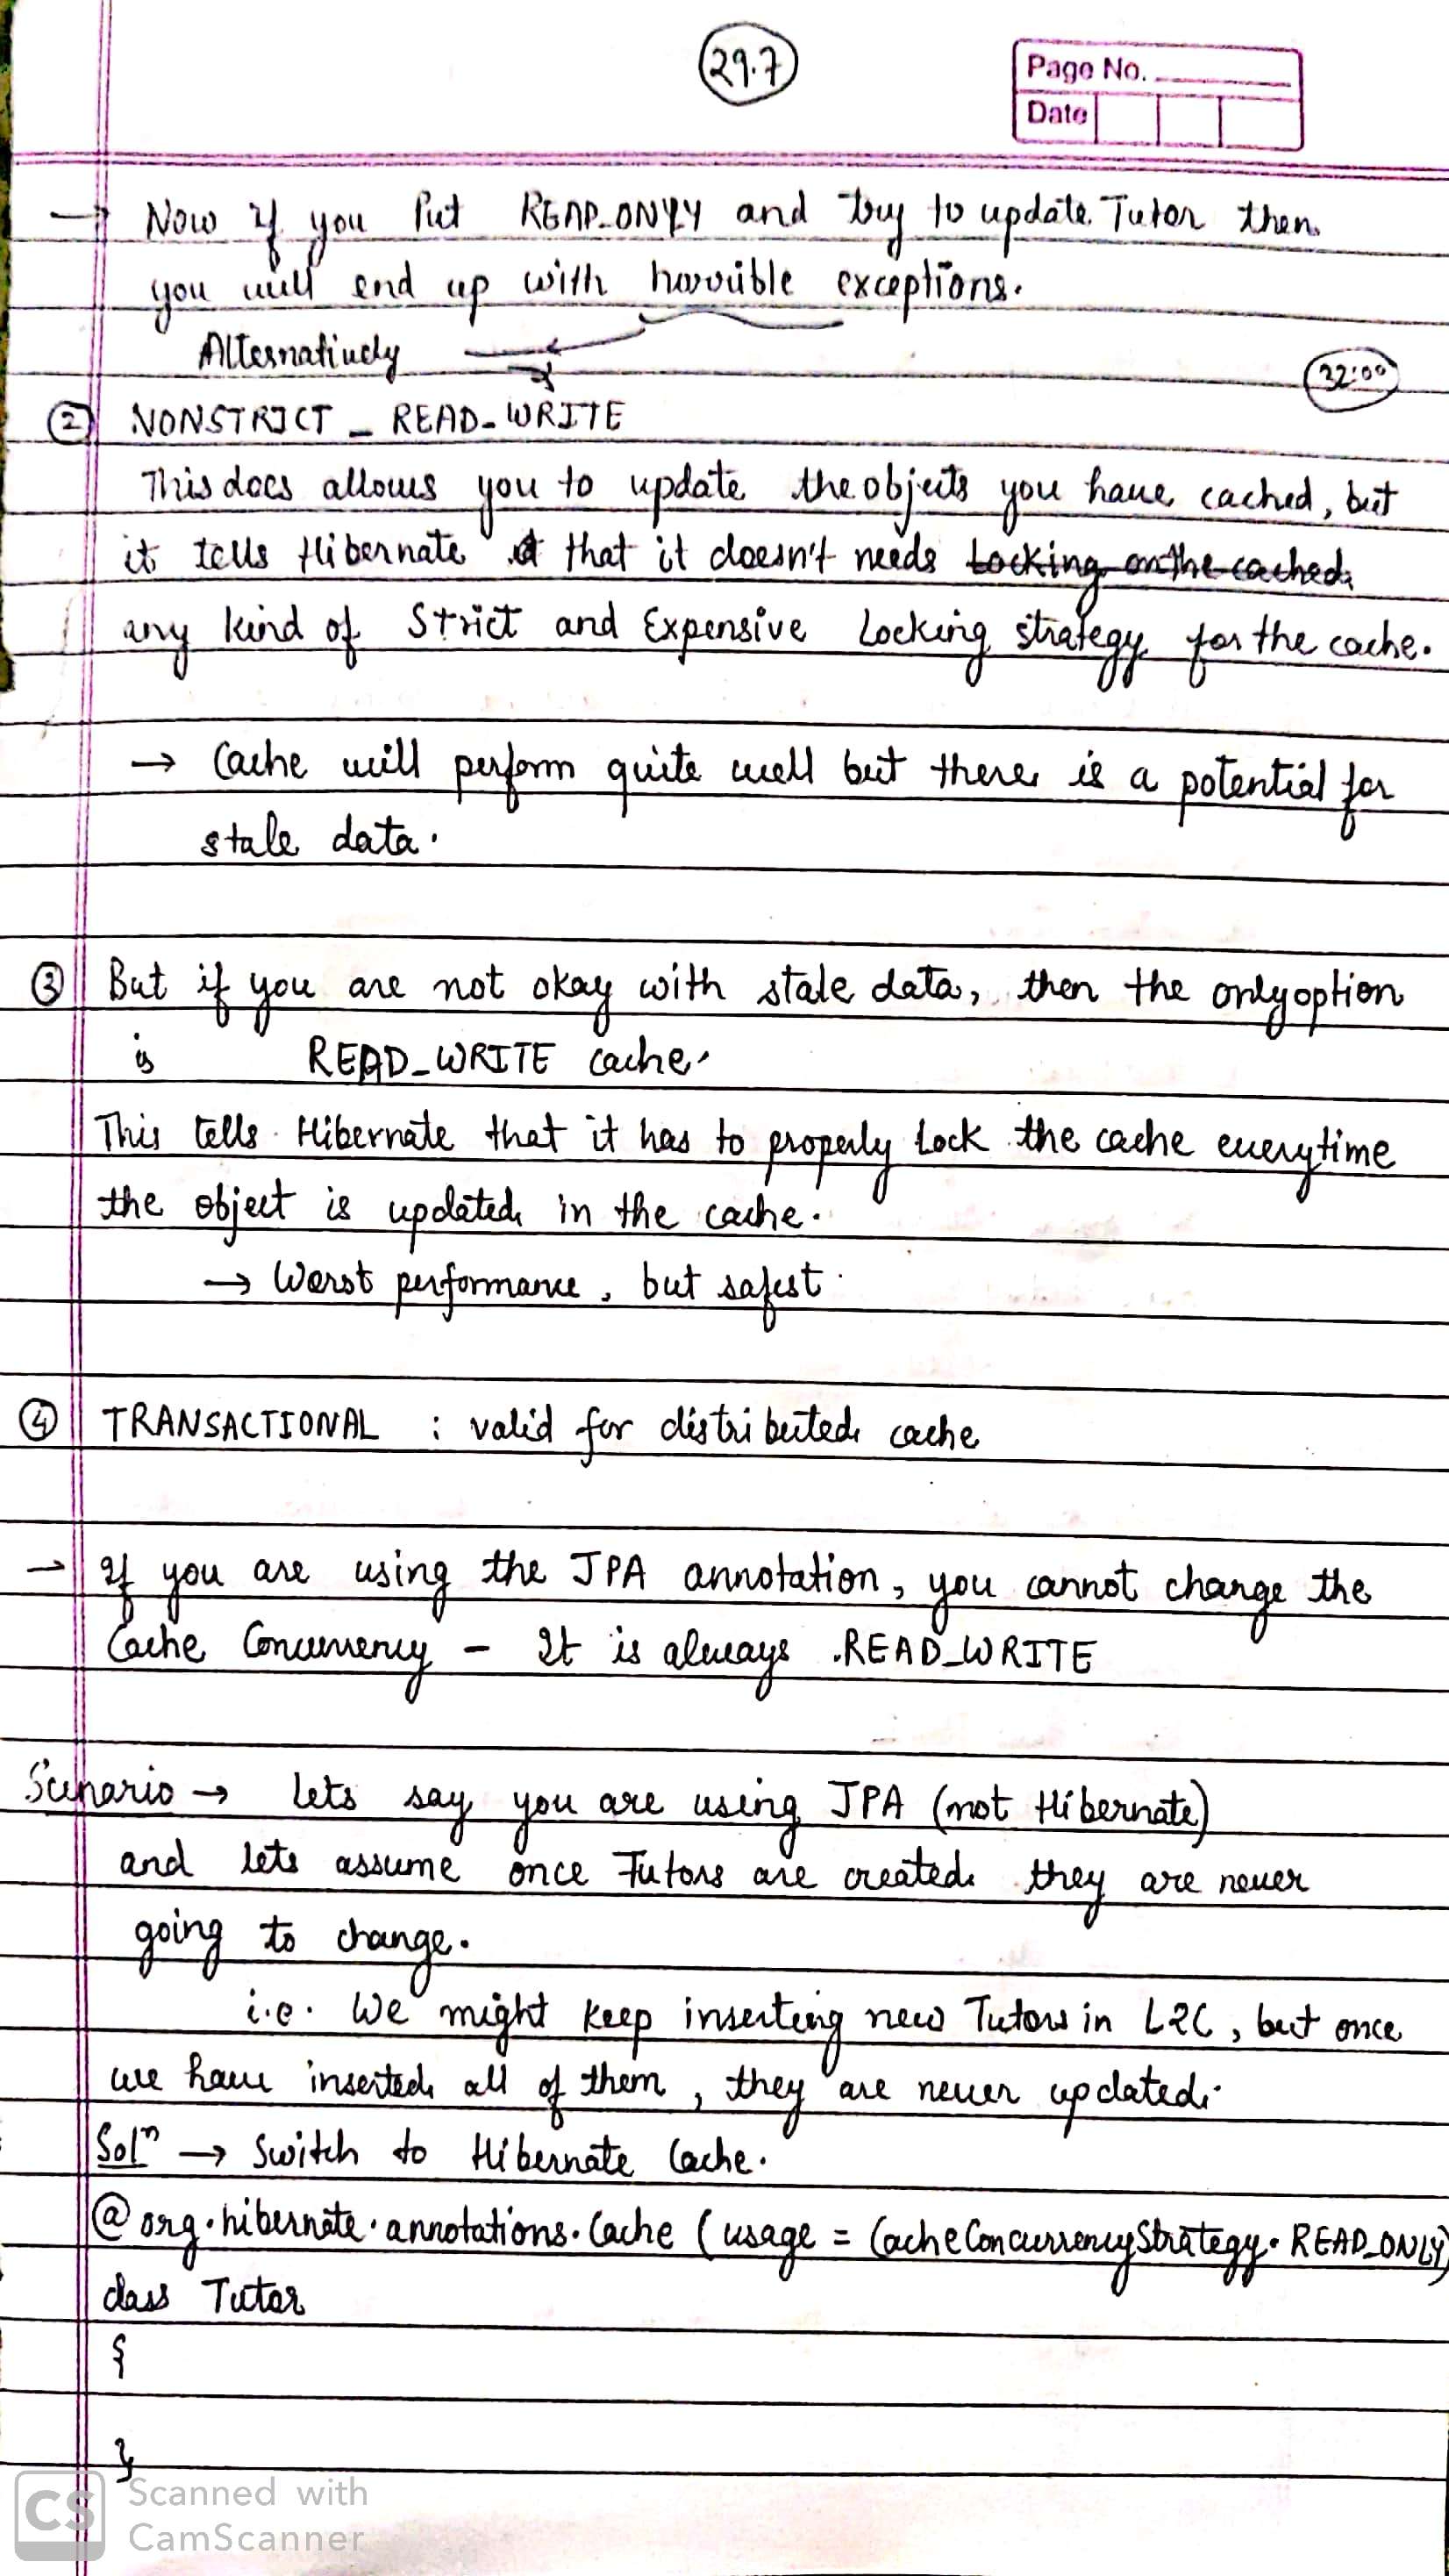 29.7
Page No.
Date
→ Now if you Put READ_ONLY and try to update Tutor then
you will end up with horrible exceptions.
Alternatively
32:00
② NONSTRICT_READ-WRITE
This does allows you to update the objects you have cached, but
it tells Hibernate that it doesn't needs Locking on the cached
any kind of Strict and Expensive Locking strategy for the cache.
→ Cache will perform quite well but there is a potential for
stale data.
③ But if you are not okay with stale data, then the only option
is READ_WRITE cache.
This tells Hibernate that it has to properly Lock the cache everytime
the object is updated in the cache.
→ Worst performance, but safest.
④ TRANSACTIONAL : valid for distributed cache
→ If you are using the JPA annotation, you cannot change the
Cache Concurrency - It is always READ_WRITE
Scenario → lets say you are using JPA (not Hibernate)
and lets assume once Tutors are created they are never
going to change.
i.e. We might keep inserting new Tutors in L2C, but once
we have inserted all of them, they are never updated.
Solⁿ → Switch to Hibernate Cache.
@org.hibernate.annotations.Cache (usage = CacheConcurrencyStrategy.READ_ONLY)
class Tutor
{
}
CS Scanned with
CamScanner